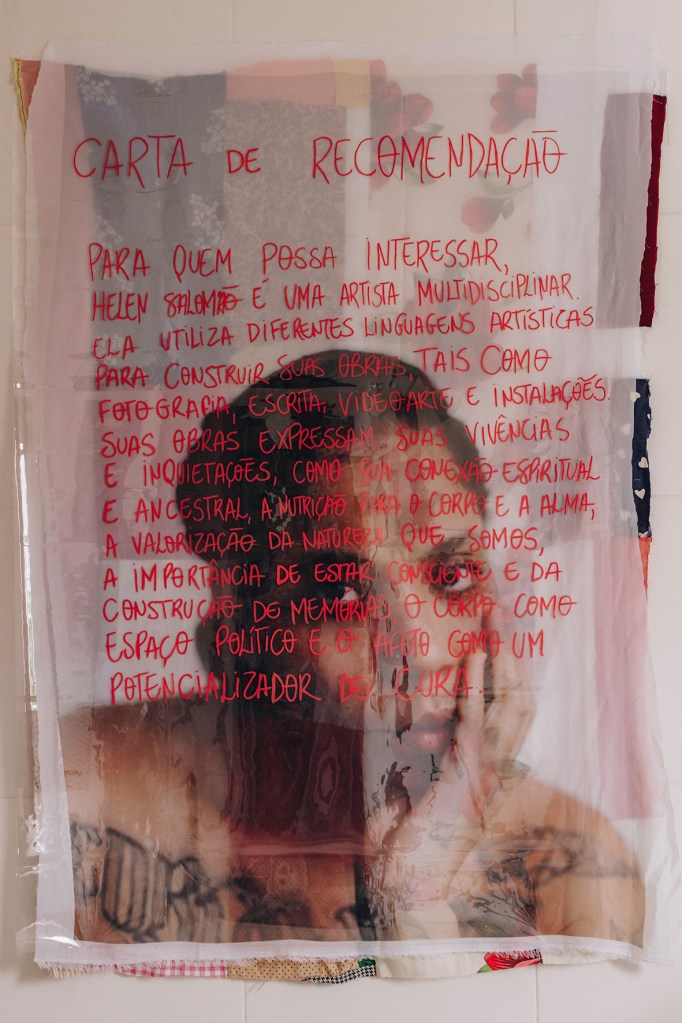 CARTA DE RECOMENDAÇÃO
PARA QUEM POSSA INTERESSAR,
HELEN SALOMÃO É UMA ARTISTA MULTIDISCIPLINAR.
ELA UTILIZA DIFERENTES LINGUAGENS ARTÍSTICAS
PARA CONSTRUIR SUAS OBRAS, TAIS COMO
FOTOGRAFIA, ESCRITA, VIDEOARTE E INSTALAÇÕES.
SUAS OBRAS EXPRESSAM SUAS VIVÊNCIAS
E INQUIETAÇÕES, COMO SUA CONEXÃO ESPIRITUAL
E ANCESTRAL, A NUTRIÇÃO PARA O CORPO E A ALMA,
A VALORIZAÇÃO DA NATUREZA QUE SOMOS,
A IMPORTÂNCIA DE ESTAR CONSCIENTE E DA
CONSTRUÇÃO DE MEMÓRIAS, O CORPO COMO
ESPAÇO POLÍTICO E O AFETO COMO UM
POTENCIALIZADOR DE CURA.